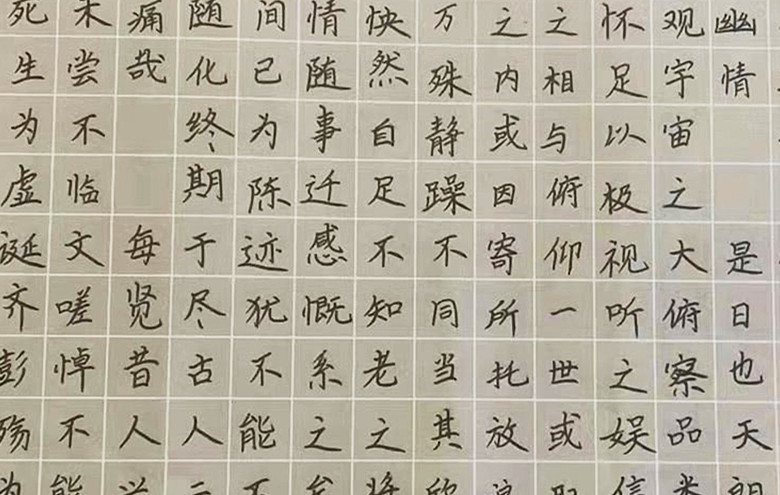 幽情是日也天朗
观宇宙之大俯察品类
怀足以极视听之娱信
之相与俯仰一世或取
之内或因寄所托放浪
万殊静躁不同当其欣
快然自足不知老之将
情随事迁感慨系之矣
间已为陈迹犹不能不
随化终期于尽古人云
痛哉每览昔人兴
未尝不临文嗟悼不能
死生为虚诞齐彭殇为